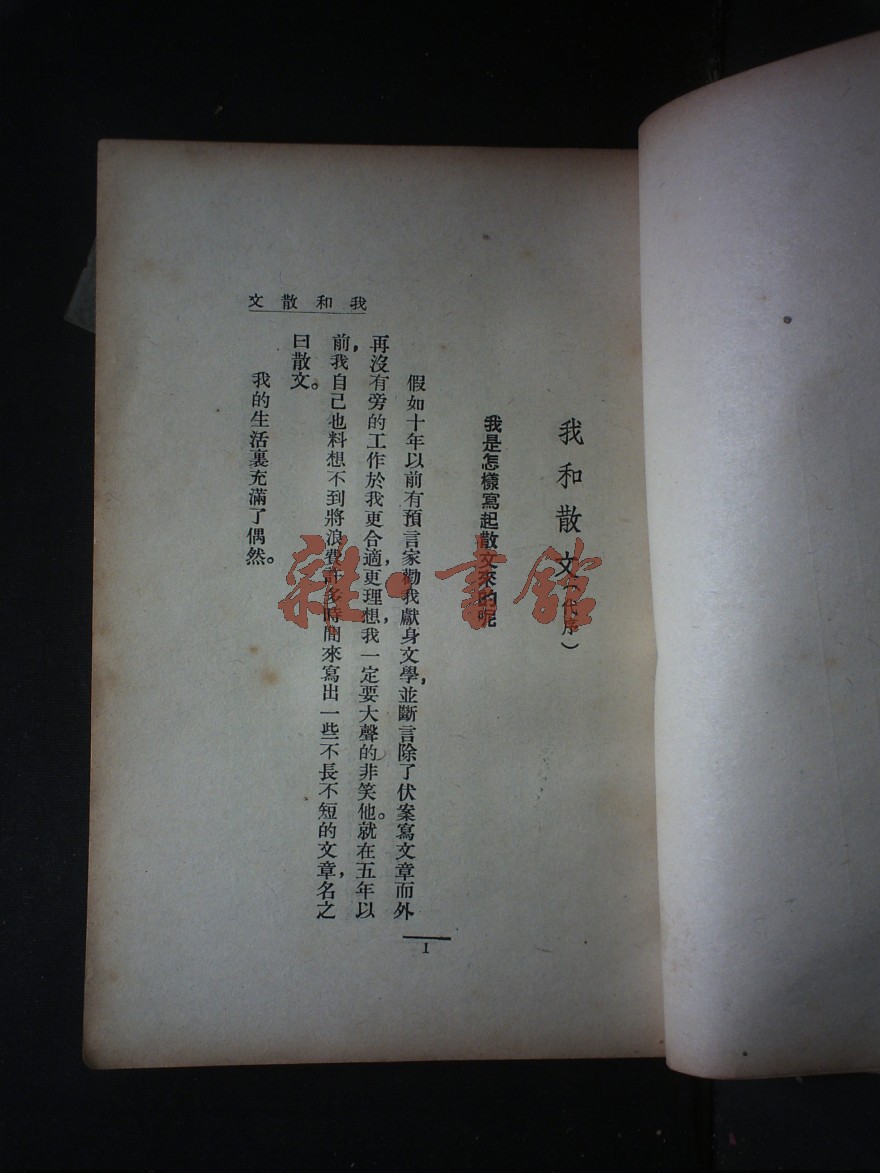 我和散文(代序)
我是怎樣寫起散文來的呢
假如十年以前有預言家勸我獻身文學,並斷言除了伏案寫文章而外
再沒有旁的工作於我更合適,更理想,我一定要大聲的非笑他。就在五年以
前,我自己也料想不到將浪費許多時間來寫出一些不長不短的文章,名之
曰散文。
我的生活裏充滿了偶然。
我和散文
1
雜·書館